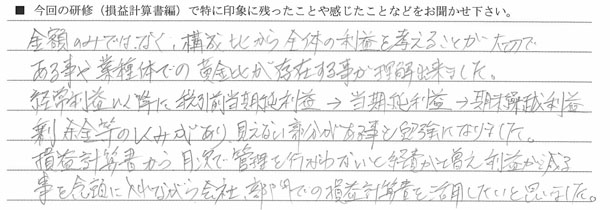 ■ 今回の研修（損益計算書編）で特に印象に残ったことや感じたことなどをお聞かせ下さい。
金額のみではなく、構成比から全体の利益を考えることが大切で
ある事や業種体での黄金比が存在する事が理解出来ました。
経常利益以降に税引前当期純利益→当期純利益→期末繰越利益
剰余金等のしくみがあり、見えない部分がある事も勉強になりました。
損益計算書から月次で管理を行なわないと経費が増え利益が減る
事を念頭に入れながら会社、部門での損益計算書を活用したいと思いました。